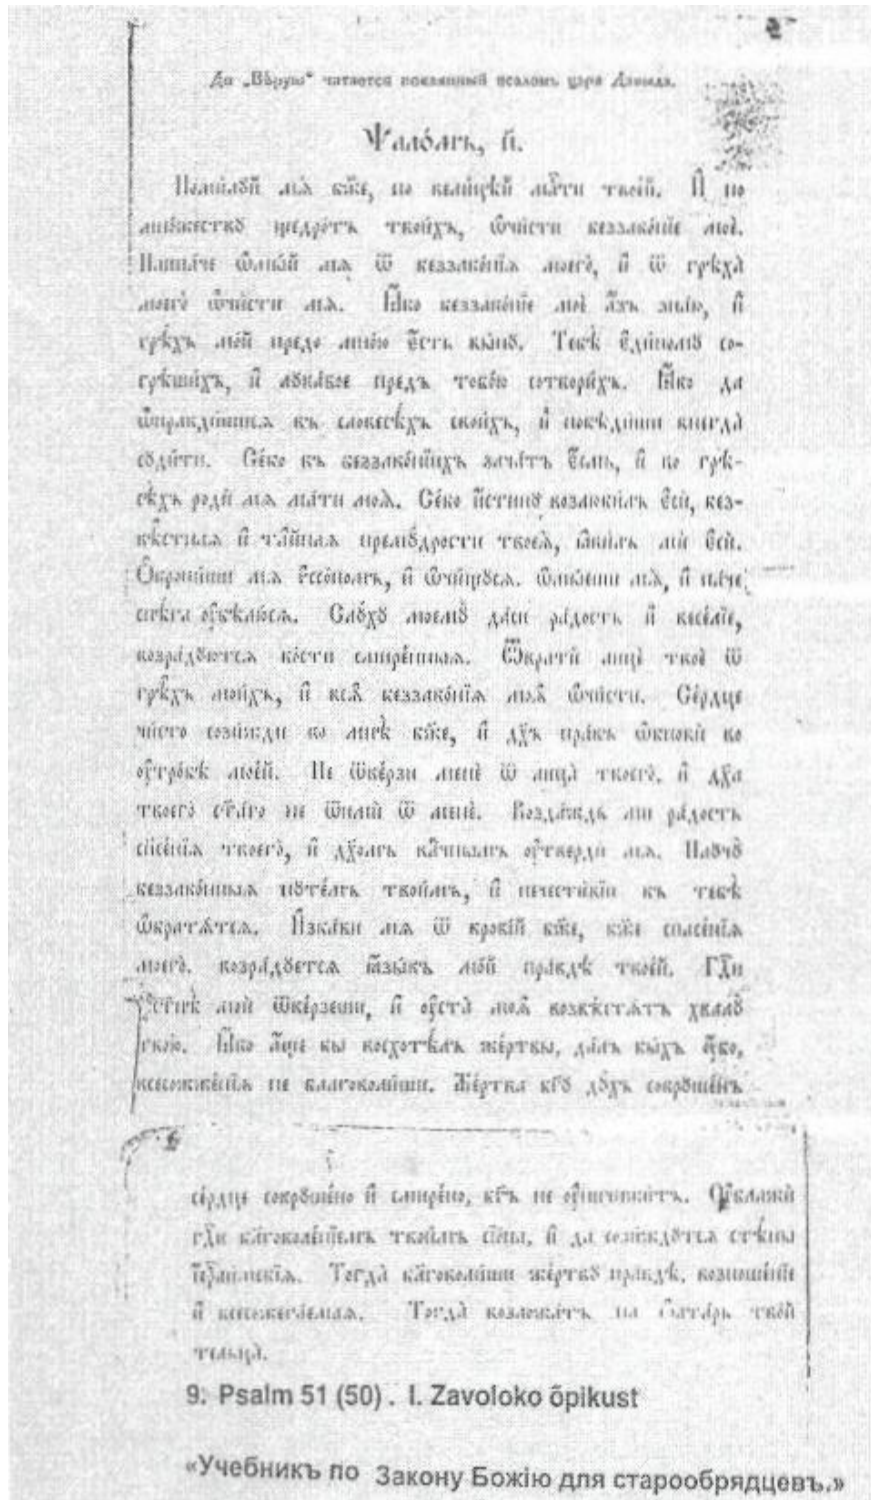 До „Вѣрую“ читается покаянный псаломъ царя Давида.
Ѱало́мъ, н҃.
Поми́лꙋй мѧ̀ бж҃е, по вели́цѣй млⷭ҇ти твое́й. И҆ по
мно́жествꙋ щедро́тъ твои́хъ, ѡ҆чи́сти беззако́нїе моѐ.
Наипа́че ѡ҆мы́й мѧ ѿ беззако́нїѧ моегѡ̀, и҆ ѿ грѣха̀
моегѡ̀ ѡ҆чи́сти мѧ. Ꙗ҆́ко беззако́нїе моѐ а҆́зъ зна́ю, и҆
грѣ́хъ мо́й предо мно́ю є҆́сть вы́нꙋ. Тебѣ̀ є҆ди́номꙋ со-
грѣши́хъ, и҆ лꙋка́вое предъ тобо́ю сотвори́хъ. Ꙗ҆́ко да
ѡ҆правди́шисѧ въ словесѣ́хъ свои́хъ, и҆ побѣди́ши внегда̀
сꙋди́ти. Се́бо въ беззако́нїихъ зача́тъ є҆́смь, и҆ во грѣ-
сѣ́хъ роди́ мѧ ма́ти моѧ̀. Се́бо и҆́стинꙋ возлюби́лъ є҆сѝ, без-
вѣ́стнаѧ и҆ та́йнаѧ премꙋ́дрости твоеѧ̀, ꙗ҆ви́лъ мѝ є҆сѝ.
Ѡ҆кропи́ши мѧ и҆ссо́помъ, и҆ ѡ҆чи́щꙋсѧ. ѡ҆мы́еши мѧ, и҆ па́че
снѣ́га ᲂу҆бѣлю́сѧ. Слꙋ́хꙋ моемꙋ̀ да́си ра́дость и҆ весе́лїе,
возра́дꙋютсѧ ко́сти смире́нныѧ. Ѿвратѝ лицѐ твоѐ ѿ
грѣ́хъ мои́хъ, и҆ всѧ̀ беззако́нїѧ моѧ̀ ѡ҆чи́сти. Се́рдце
чи́сто сози́жди во мнѣ̀ бж҃е, и҆ дх҃ъ пра́въ ѡ҆бновѝ во
ᲂу҆тро́бѣ мое́й. Не ѿве́рзи менѐ ѿ лица̀ твоегѡ̀, и҆ дх҃а
твоегѡ̀ ст҃а́го не ѿимѝ ѿ менѐ. Возда́ждь ми ра́дость
сп҃се́нїѧ твоегѡ̀, и҆ дх҃омъ влⷣчнымъ ᲂу҆твердѝ мѧ. Наꙋчꙋ̀
беззако́нныѧ пꙋте́мъ твои́мъ, и҆ нечести́вїи къ тебѣ̀
ѡ҆братѧ́тсѧ. И҆зба́ви мѧ ѿ крове́й бж҃е, бж҃е спасе́нїѧ
моегѡ̀. возра́дꙋетсѧ ꙗ҆зы́къ мо́й пра́вдѣ твое́й. Гдⷭ҇и
ᲂу҆стнѣ̀ моѝ ѿве́рзеши, и҆ ᲂу҆ста̀ моѧ̀ возвѣстѧ́тъ хвалꙋ̀
твою̀. Ꙗ҆́ко а҆́ще бы восхотѣ́лъ же́ртвы, да́лъ бы́хъ ᲂу҆́бо,
всесожже́нїѧ не благоволи́ши. Же́ртва бг҃ꙋ дꙋ́хъ сокрꙋше́нъ
се́рдце сокрꙋше́но и҆ смире́но, бг҃ъ не ᲂу҆ничижи́тъ. Оу҆блажѝ
гдⷭ҇и бл҃говоле́нїемъ твои́мъ сїѡ́на, и҆ да сози́ждꙋтсѧ стѣ́ны
і҆ерⷭ҇ли́мскїѧ. Тогда̀ бл҃говоли́ши же́ртвꙋ пра́вдѣ, возноше́нїе
и҆ всесожега́емаѧ. Тогда̀ возложа́тъ на ѻ҆лта́рь тво́й
тельца̀.
9. Psalm 51 (50) . I. Zavoloko õpikust
«Учебникъ по Закону Божію для старообрядцевъ.»